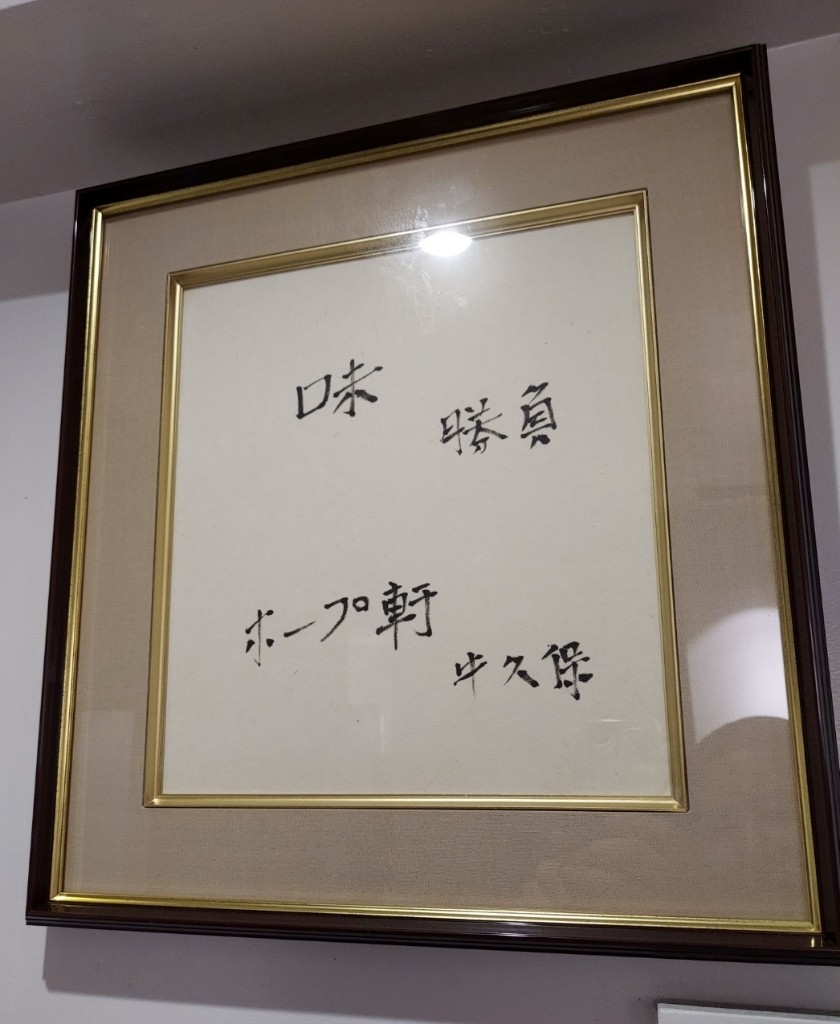 味
勝負
ホープ軒
牛久保